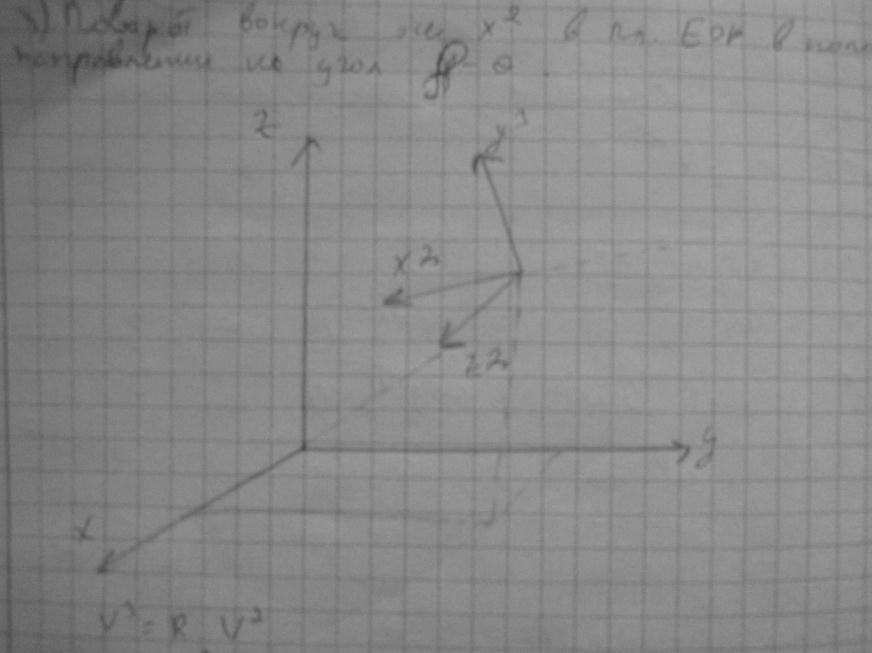 3) Поворот вокруг оси x² в пл. EOK в
направлении на угол - θ.
z
y³
x2
z2
y
x
V³ = R V²